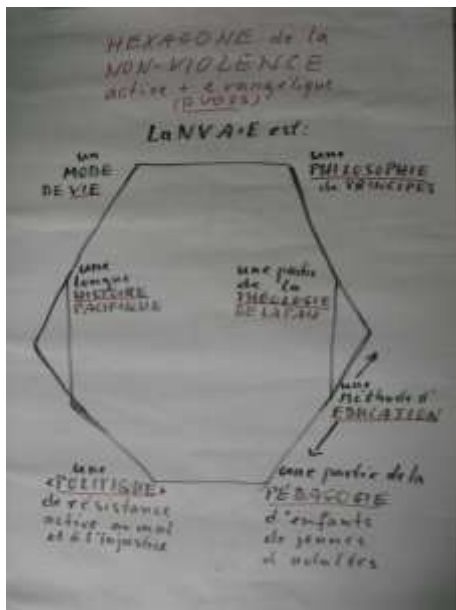 HEXAGONE de la
NON-VIOLENCE
active + evangélique
La NVA+E est:
un
MODE
DE VIE
une
PHILOSOPHIE
de PRINCIPES
une
longue
HISTOIRE
PACIFIQUE
une partie
de la
THEOLOGIE
DE LA PAIX
une
Méthode d'
EDUCATION
une
«POLITIQUE»
de résistance
active au mal
et à l'injustice
une partie de la
PÉDAGOGIE
d'enfants
de jeunes